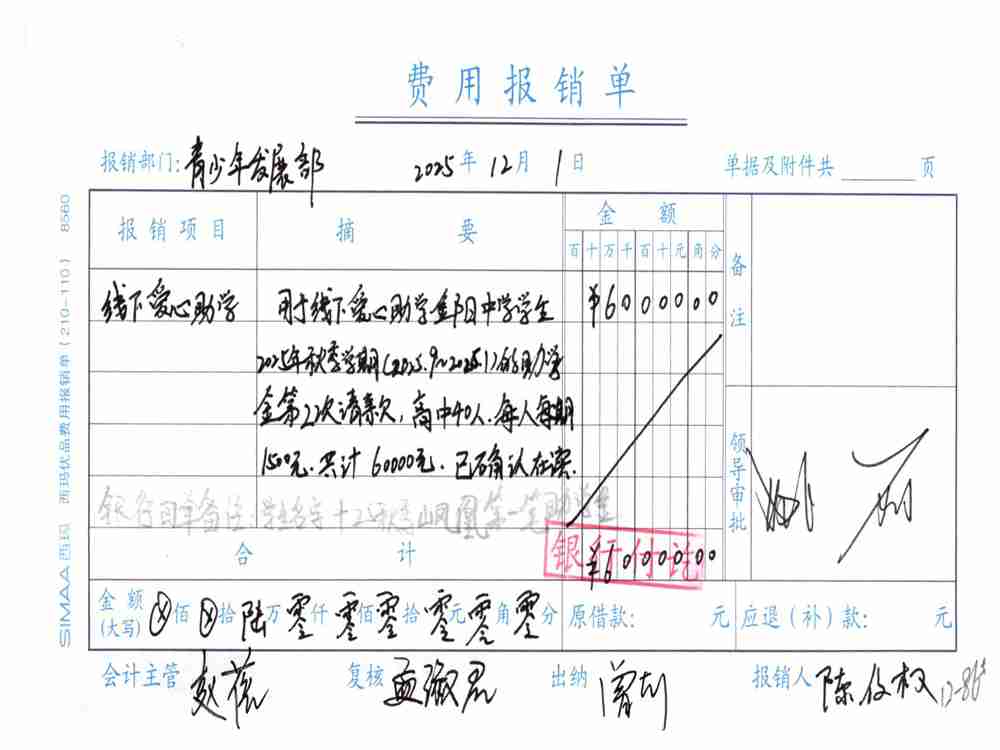 费用报销单
报销部门: 青少年发展部 2025年 12月 1日 单据及附件共 页
报销项目 摘要 金额 备注
百十万千百十元角分
线下爱心助学 用于线下爱心助学 中学学生 ¥6000000
2025年秋季学期(2025.9~2026.1)的助学
金第22次请款,高中40人.每人每期
1500元.共计60000元.已确认在读.
银行回单备注:学生
领导审批
合计 ¥6000000
银行付讫
金额(大写) ⊗佰⊗拾陆万零仟零佰零拾零元零角零分 原借款: 元 应退(补)款: 元
会计主管 复核 孟 出纳 曾 报销人 陈俊权
SIMAA 西玛 西玛优品费用报销单(210-110) 8560